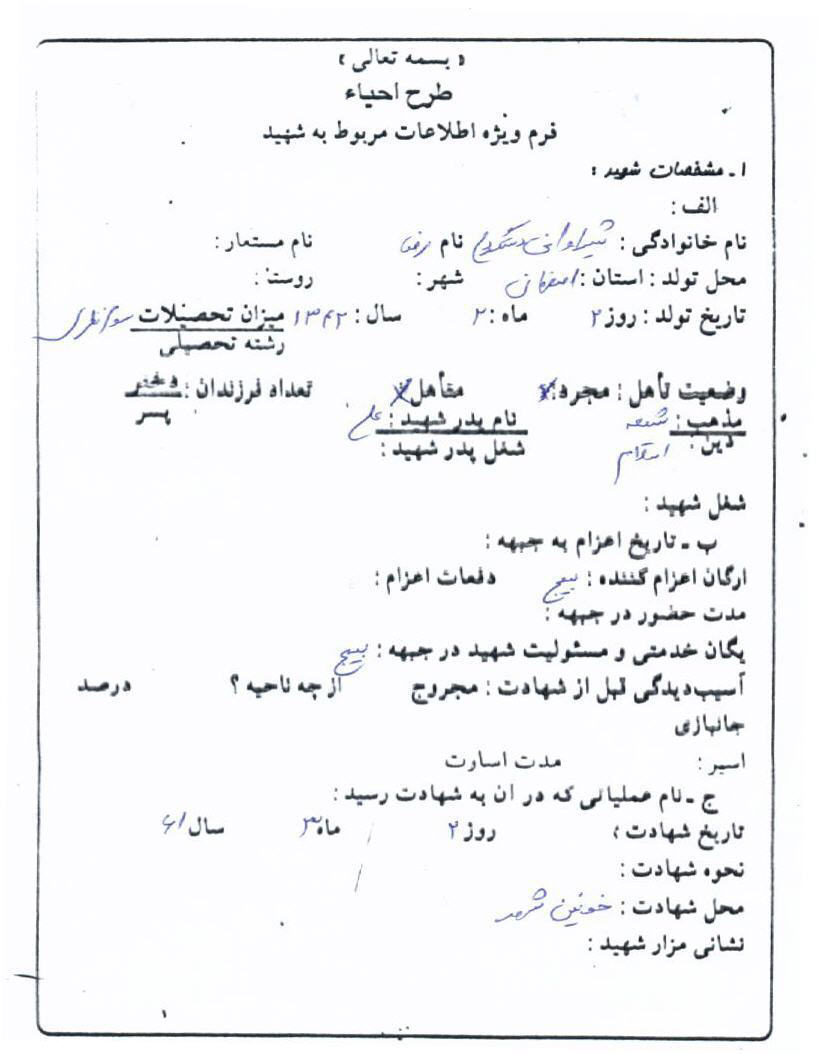 « بسمه تعالی »
طرح احیاء
فرم ویژه اطلاعات مربوط به شهید
۱ـ مشخصات شهید :
الف :
نام خانوادگی : نام رضا نام مستعار :
محل تولد : استان : اصفهان شهر : روستا :
تاریخ تولد : روز ۲ ماه : ۲ سال : ۱۳۴۲ میزان تحصیلات
رشته تحصیلی
وضعیت تأهل : مجرد : متأهل : تعداد فرزندان : دختر
پسر
مذهب : شیعه نام پدر شهید : علی
دین : اسلام شغل پدر شهید :
شغل شهید :
ب ـ تاریخ اعزام به جبهه :
ارگان اعزام کننده : بسیج دفعات اعزام :
مدت حضور در جبهه :
یگان خدمتی و مسئولیت شهید در جبهه : بسیج
آسیب‌دیدگی قبل از شهادت : مجروح از چه ناحیه ؟ درصد
جانبازی
اسیر : مدت اسارت
ج ـ نام عملیاتی که در ان به شهادت رسید :
تاریخ شهادت : روز ۲ ماه ۳ سال ۶۱
نحوه شهادت :
محل شهادت : خونین شهر
نشانی مزار شهید :
۱